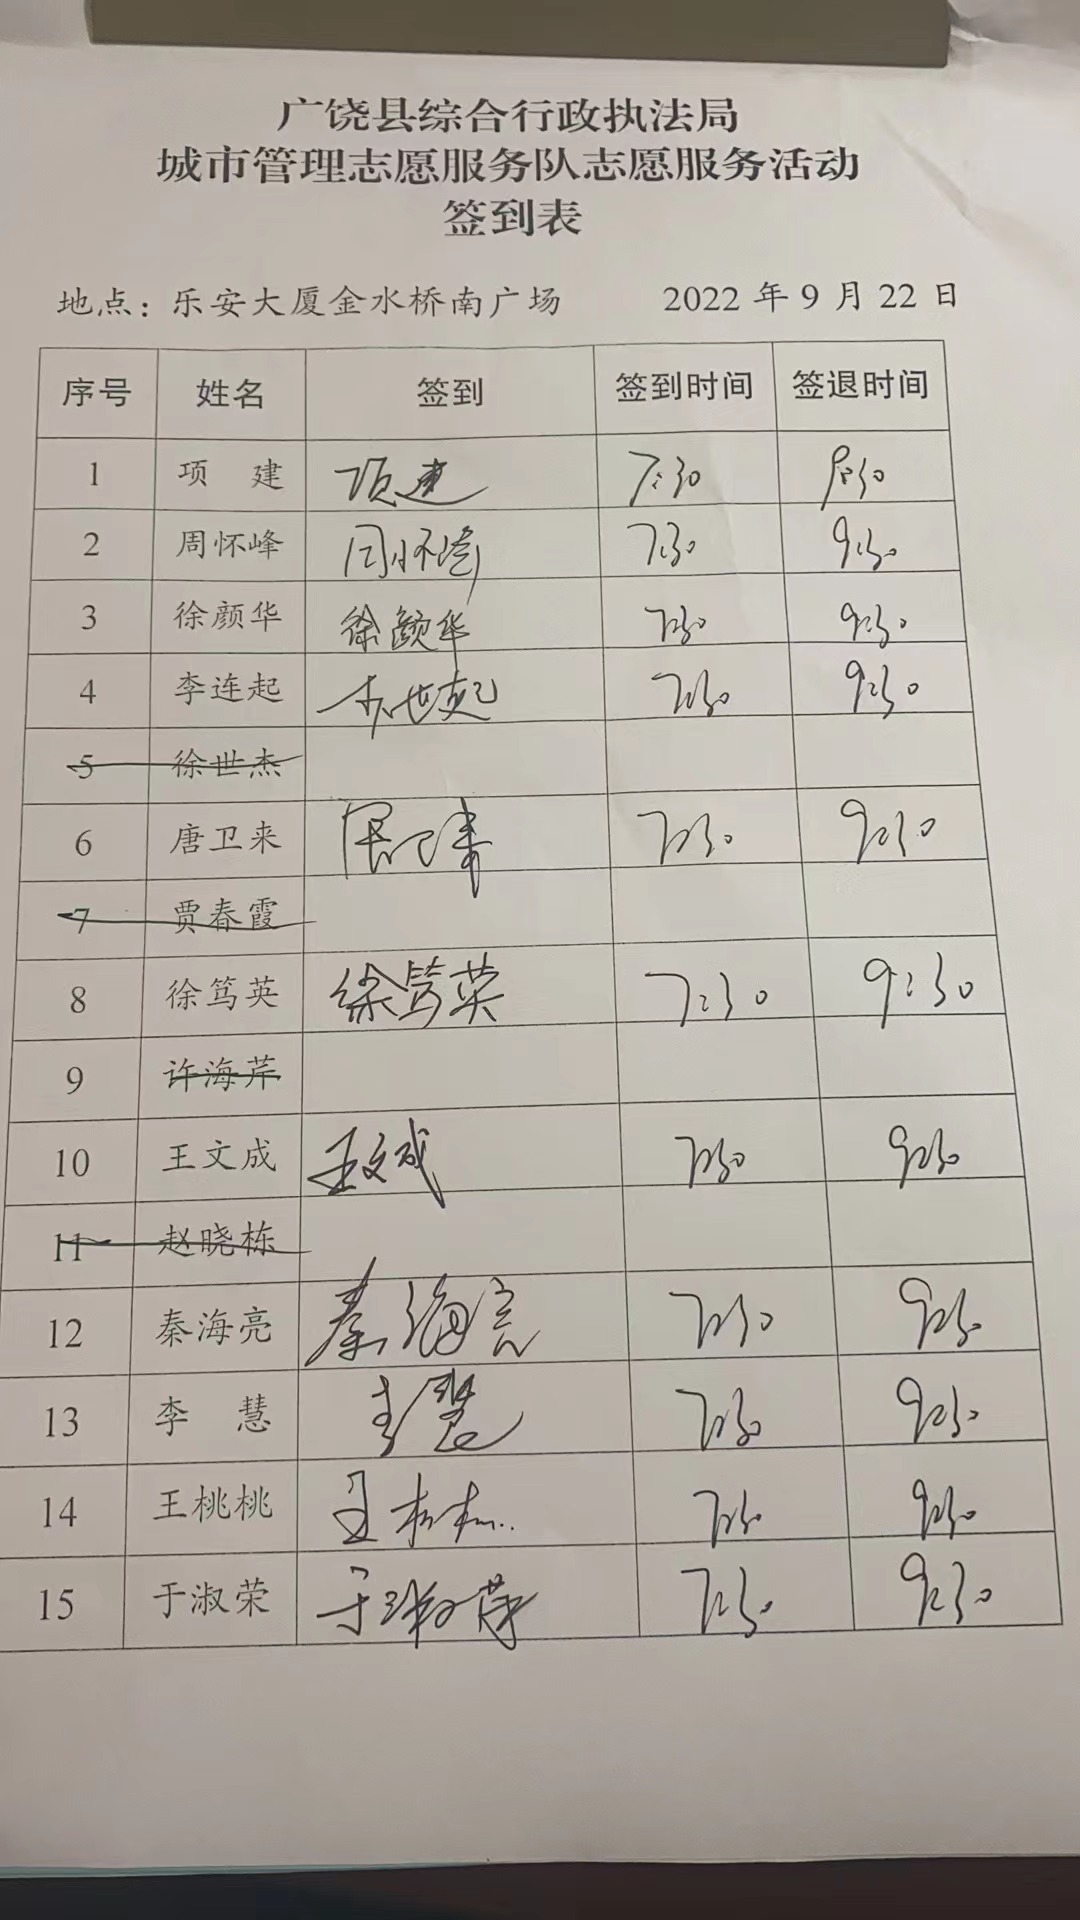 广饶县综合行政执法局
城市管理志愿服务队志愿服务活动
签到表
地点：乐安大厦金水桥南广场 2022年9月22日
序号 姓名 签到 签到时间 签退时间
1 项 建 项建 7:30 9:30
2 周怀峰 周怀峰 7:30 9:30
3 徐颜华 徐颜华 7:30 9:30
4 李连起 李连起 7:30 9:30
5 徐世杰
6 唐卫来 唐卫来 7:30 9:30
7 贾春霞
8 徐笃英 徐笃英 7:30 9:30
9 许海芹
10 王文成 王文成 7:30 9:30
11 赵晓栋
12 秦海亮 秦海亮 7:30 9:30
13 李 慧 李慧 7:30 9:30
14 王桃桃 王桃桃 7:30 9:30
15 于淑荣 于淑荣 7:30 9:30